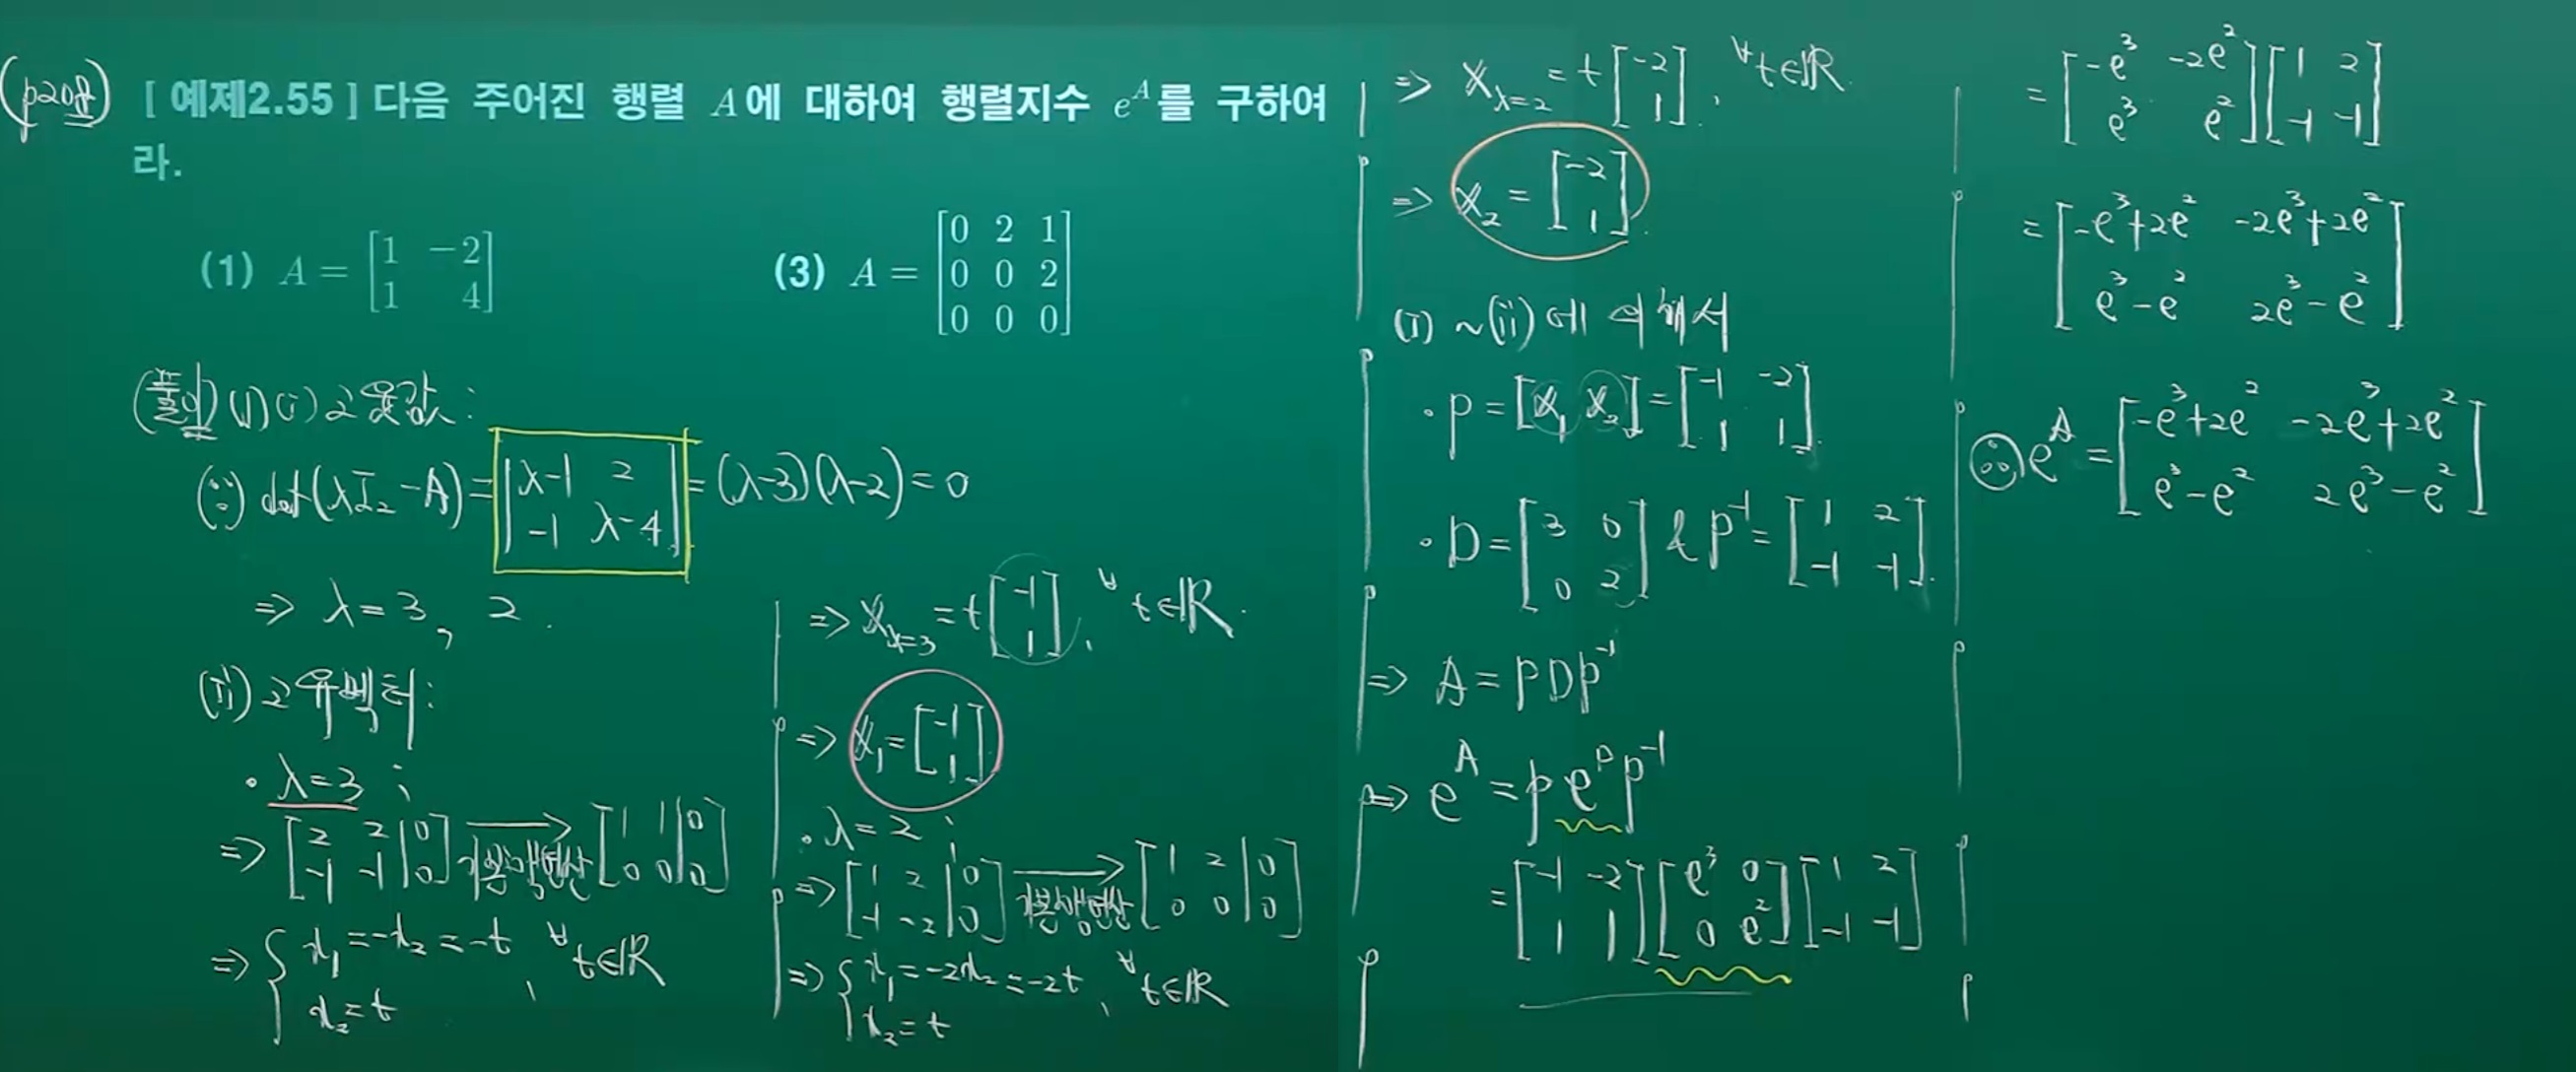 (p208) [ 예제2.55 ] 다음 주어진 행렬 A에 대하여 행렬지수 e^A를 구하여
라.
(1) A = [1 -2; 1 4] (3) A = [0 2 1; 0 0 2; 0 0 0]
(풀이) (1) (i) 고윳값 :
(∵) det(λI₂ - A) = |λ-1 2; -1 λ-4| = (λ-3)(λ-2) = 0
⇒ λ = 3, 2.
(ii) 고유벡터 :
· λ = 3 ;
⇒ [2 2 | 0; -1 -1 | 0] → 기본행연산 [1 1 | 0; 0 0 | 0]
⇒ { x₁ = -x₂ = -t, ∀t∈ℝ
x₂ = t
⇒ X_{λ=3} = t[-1; 1], ∀t∈ℝ.
⇒ X₁ = [-1; 1]
· λ = 2 ;
⇒ [1 2 | 0; -1 -2 | 0] → 기본행연산 [1 2 | 0; 0 0 | 0]
⇒ { x₁ = -2x₂ = -2t, ∀t∈ℝ
x₂ = t
⇒ X_{λ=2} = t[-2; 1], ∀t∈ℝ.
⇒ X₂ = [-2; 1].
(i) ~ (ii) 에 의해서
· P = [X₁ X₂] = [-1 -2; 1 1].
· D = [3 0; 0 2] & P⁻¹ = [1 2; -1 -1].
⇒ A = PDP⁻¹
⇒ e^A = P e^D P⁻¹
= [-1 -2; 1 1][e³ 0; 0 e²][1 2; -1 -1]
= [-e³ -2e²; e³ e²][1 2; -1 -1]
= [-e³+2e² -2e³+2e²; e³-e² 2e³-e²]
∴ e^A = [-e³+2e² -2e³+2e²; e³-e² 2e³-e²]